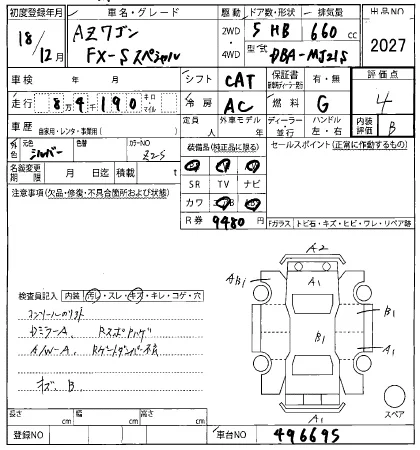 初度登録年月 車名・グレード 駆動 ドア数・形状 排気量 出品NO
18/12月 AZワゴン 2WD 5 HB 660cc 2027
FX-Sスペシャル 4WD 型式 DBA-MJ21S
車検 年 月 シフト CAT 保証書 有・無 評価点
走行 8万4千190 キロ・マイル 冷房 AC 燃料 G 4
車歴 自家用・レンタ・事業用( ) 定員 人 外車モデル 年 ディーラー・並行 ハンドル 左・右 内装評価 B
外色 元色 シルバー 色替 カラーNO Z2S 装備品(純正品に限る) セールスポイント(正常に作動するもの)
名義変更期限 月 日迄 積載 t SR TV ナビ
注意事項(欠品・修復・不具合箇所および状態) カワ
R券 9480円 Fガラス トビ石・キズ・ヒビ・ワレ・リペア跡
A2
AB1 A1
検査員記入 内装 汚レ・スレ・キズ・キレ・コゲ・穴
B1
コンソールのリフト B1
DミラーA
A/W-A A1
キズ、B
A1 スペア
長さ cm 幅 cm 高さ cm
登録NO 車台NO 496695